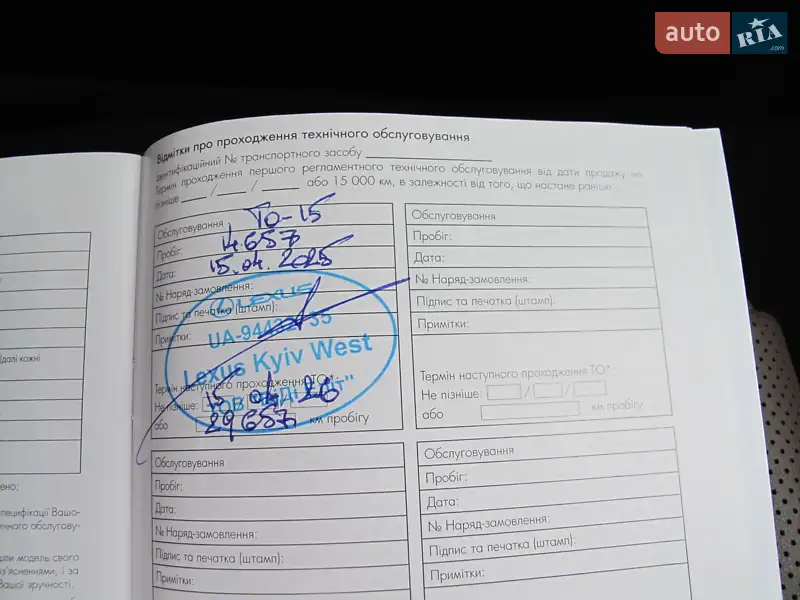 auto RIA.com
Відмітки про проходження технічного обслуговування
Ідентифікаційний № транспортного засобу
Термін проходження першого регламентного технічного обслуговування від дати продажу не
пізніше ____ / ____ / ____ або 15 000 км, в залежності від того, що настане раніше.
Обслуговування ТО-15
Пробіг: 14.657
Дата: 15.04.2025
№ Наряд-замовлення:
Підпис та печатка (штамп):
Примітки:
LEXUS
UA-94432
Lexus Kyiv West
Термін наступного проходження ТО*:
Не пізніше: 15 04 26
або 29657 км пробігу
Обслуговування
Пробіг:
Дата:
№ Наряд-замовлення:
Підпис та печатка (штамп):
Примітки:
Термін наступного проходження ТО*
Не пізніше: / /
або км пробігу
Обслуговування
Пробіг:
Дата:
№ Наряд-замовлення:
Підпис та печатка (штамп):
Примітки:
Обслуговування
Пробіг:
Дата:
№ Наряд-замовлення:
Підпис та печатка (штамп):
Примітки:
(далі кожні
ено:
пецифікації Вашо-
ічного обслугову-
шли модель свого
з'ясненнями, і за
Вашої зручності.